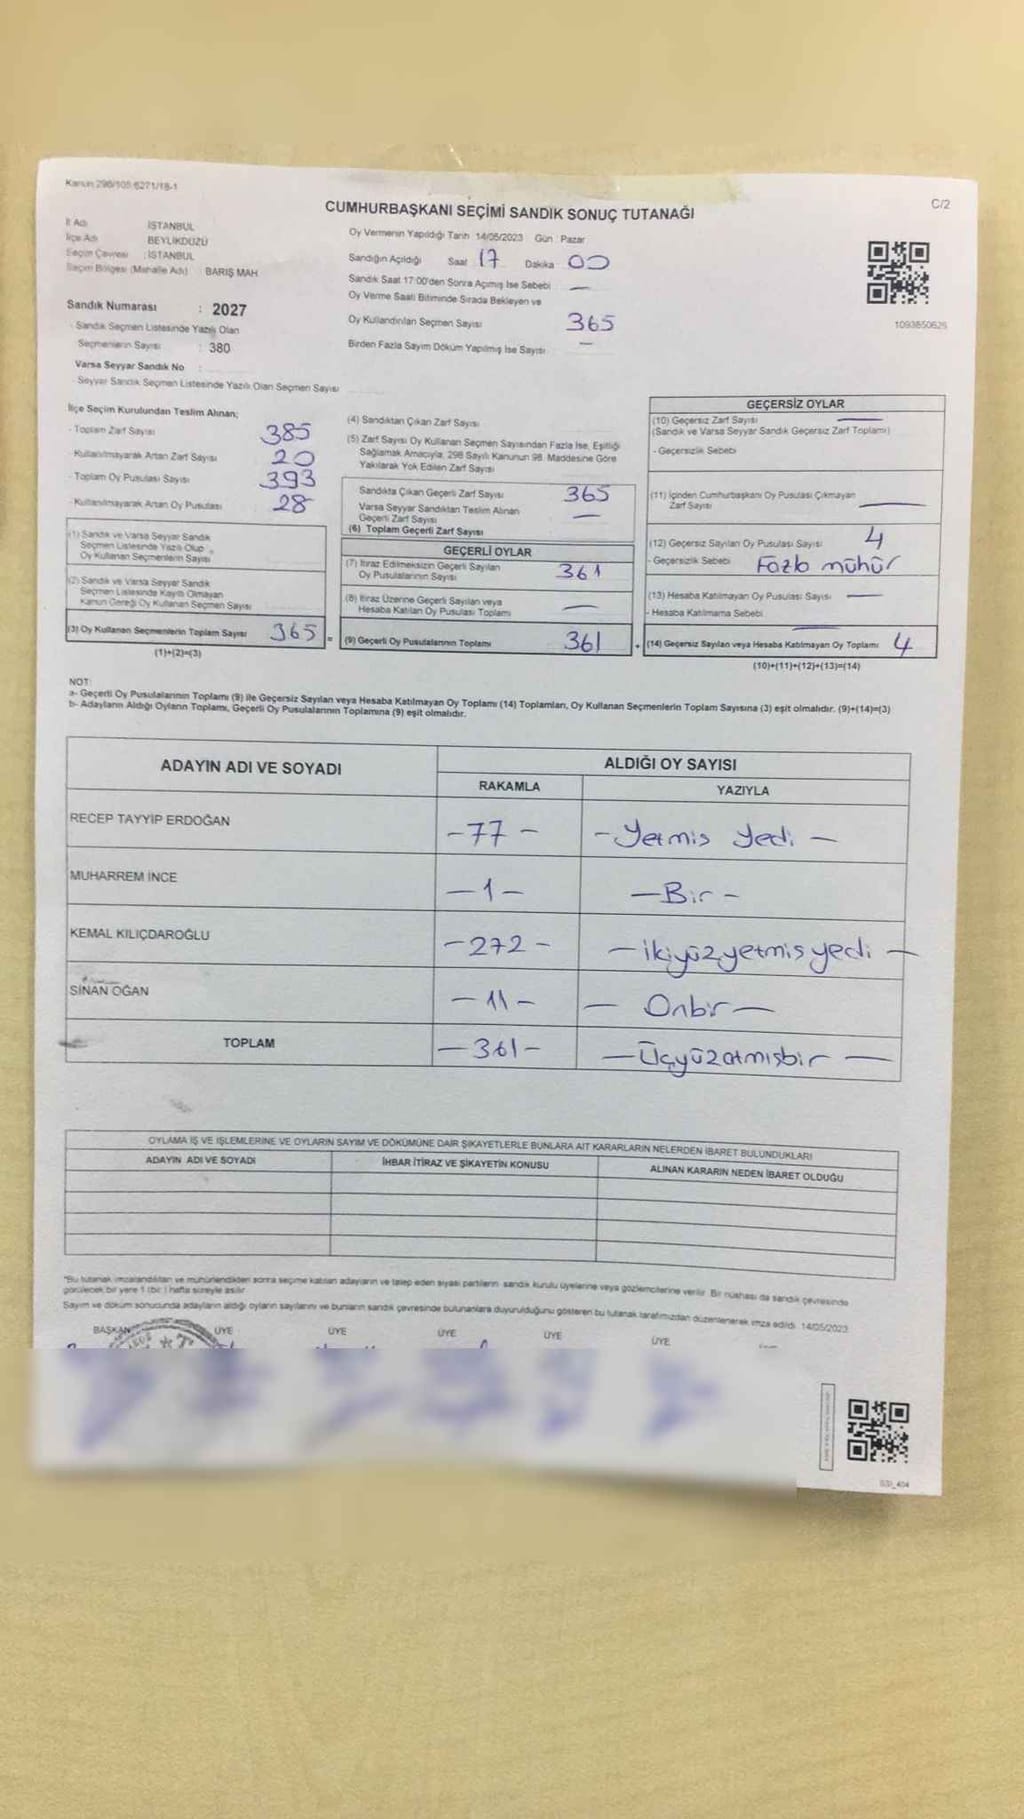 Kanun:298/105 6271/18-1
C/2
CUMHURBAŞKANI SEÇİMİ SANDIK SONUÇ TUTANAĞI
İl Adı : İSTANBUL
İlçe Adı : BEYLİKDÜZÜ
Seçim Çevresi : İSTANBUL
Seçim Bölgesi (Mahalle Adı) BARIŞ MAH
Sandık Numarası : 2027
- Sandık Seçmen Listesinde Yazılı Olan
Seçmenlerin Sayısı : 380
Varsa Seyyar Sandık No :
- Seyyar Sandık Seçmen Listesinde Yazılı Olan Seçmen Sayısı
Oy Vermenin Yapıldığı Tarih 14/05/2023 Gün : Pazar
Sandığın Açıldığı Saat 17 Dakika 00
Sandık Saat 17:00'den Sonra Açımış İse Sebebi —
Oy Verme Saati Bitiminde Sırada Bekleyen ve
Oy Kullandırılan Seçmen Sayısı 365
Birden Fazla Sayım Döküm Yapılmış İse Sayısı —
1093850626
İlçe Seçim Kurulundan Teslim Alınan;
- Toplam Zarf Sayısı 385
- Kullanılmayarak Artan Zarf Sayısı 20
- Toplam Oy Pusulası Sayısı 393
- Kullanılmayarak Artan Oy Pusulası 28
(1) Sandık ve Varsa Seyyar Sandık
Seçmen Listesinde Yazılı Olup
Oy Kullanan Seçmenlerin Sayısı
(2) Sandık ve Varsa Seyyar Sandık
Seçmen Listesinde Kayıtlı Olmayan
Kanun Gereği Oy Kullanan Seçmen Sayısı
(3) Oy Kullanan Seçmenlerin Toplam Sayısı 365 =
(1)+(2)=(3)
(4) Sandıktan Çıkan Zarf Sayısı
(5) Zarf Sayısı Oy Kullanan Seçmen Sayısından Fazla İse, Eşitliği
Sağlamak Amacıyla, 298 Sayılı Kanunun 98. Maddesine Göre
Yakılarak Yok Edilen Zarf Sayısı
Sandıkta Çıkan Geçerli Zarf Sayısı 365
Varsa Seyyar Sandıktan Teslim Alınan
Geçerli Zarf Sayısı —
(6) Toplam Geçerli Zarf Sayısı
GEÇERLİ OYLAR
(7) İtiraz Edilmeksizin Geçerli Sayılan
Oy Pusulalarının Sayısı 361
(8) İtiraz Üzerine Geçerli Sayılan veya
Hesaba Katılan Oy Pusulası Toplamı —
(9) Geçerli Oy Pusulalarının Toplamı 361 +
GEÇERSİZ OYLAR
(10) Geçersiz Zarf Sayısı —
(Sandık ve Varsa Seyyar Sandık Geçersiz Zarf Toplamı)
- Geçersizlik Sebebi
(11) İçinden Cumhurbaşkanı Oy Pusulası Çıkmayan
Zarf Sayısı —
(12) Geçersiz Sayılan Oy Pusulası Sayısı 4
- Geçersizlik Sebebi Fazla mühür
(13) Hesaba Katılmayan Oy Pusulası Sayısı —
- Hesaba Katılmama Sebebi —
(14) Geçersiz Sayılan veya Hesaba Katılmayan Oy Toplamı 4
(10)+(11)+(12)+(13)=(14)
NOT:
a- Geçerli Oy Pusulalarının Toplamı (9) ile Geçersiz Sayılan veya Hesaba Katılmayan Oy Toplamı (14) Toplamları, Oy Kullanan Seçmenlerin Toplam Sayısına (3) eşit olmalıdır. (9)+(14)=(3)
b- Adayların Aldığı Oyların Toplamı, Geçerli Oy Pusulalarının Toplamına (9) eşit olmalıdır.
ADAYIN ADI VE SOYADI
ALDIĞI OY SAYISI
RAKAMLA YAZIYLA
RECEP TAYYİP ERDOĞAN -77- -Yetmis Yedi-
MUHARREM İNCE -1- -Bir-
KEMAL KILIÇDAROĞLU -272- -ikiyüzyetmisyedi-
SİNAN OĞAN -11- -Onbir-
TOPLAM -361- -Üçyüzatmışbir-
OYLAMA İŞ VE İŞLEMLERİNE VE OYLARIN SAYIM VE DÖKÜMÜNE DAİR ŞİKAYETLERLE BUNLARA AİT KARARLARIN NELERDEN İBARET BULUNDUKLARI
ADAYIN ADI VE SOYADI İHBAR İTİRAZ VE ŞİKAYETİN KONUSU ALINAN KARARIN NEDEN İBARET OLDUĞU
*Bu tutanak imzalandıktan ve mühürlendikten sonra seçime katılan adayların ve talep eden siyasi partilerin sandık kurulu üyelerine veya gözlemcilerine verilir. Bir nüshası da sandık çevresinde
görülecek bir yere 1 (bir) hafta süreyle asılır.
Sayım ve döküm sonucunda adayların aldığı oyların sayılarını ve bunların sandık çevresinde bulunanlara duyurulduğunu gösteren bu tutanak tarafımızdan düzenlenerek imza edildi. 14/05/2023
BAŞKAN ÜYE ÜYE ÜYE ÜYE ÜYE